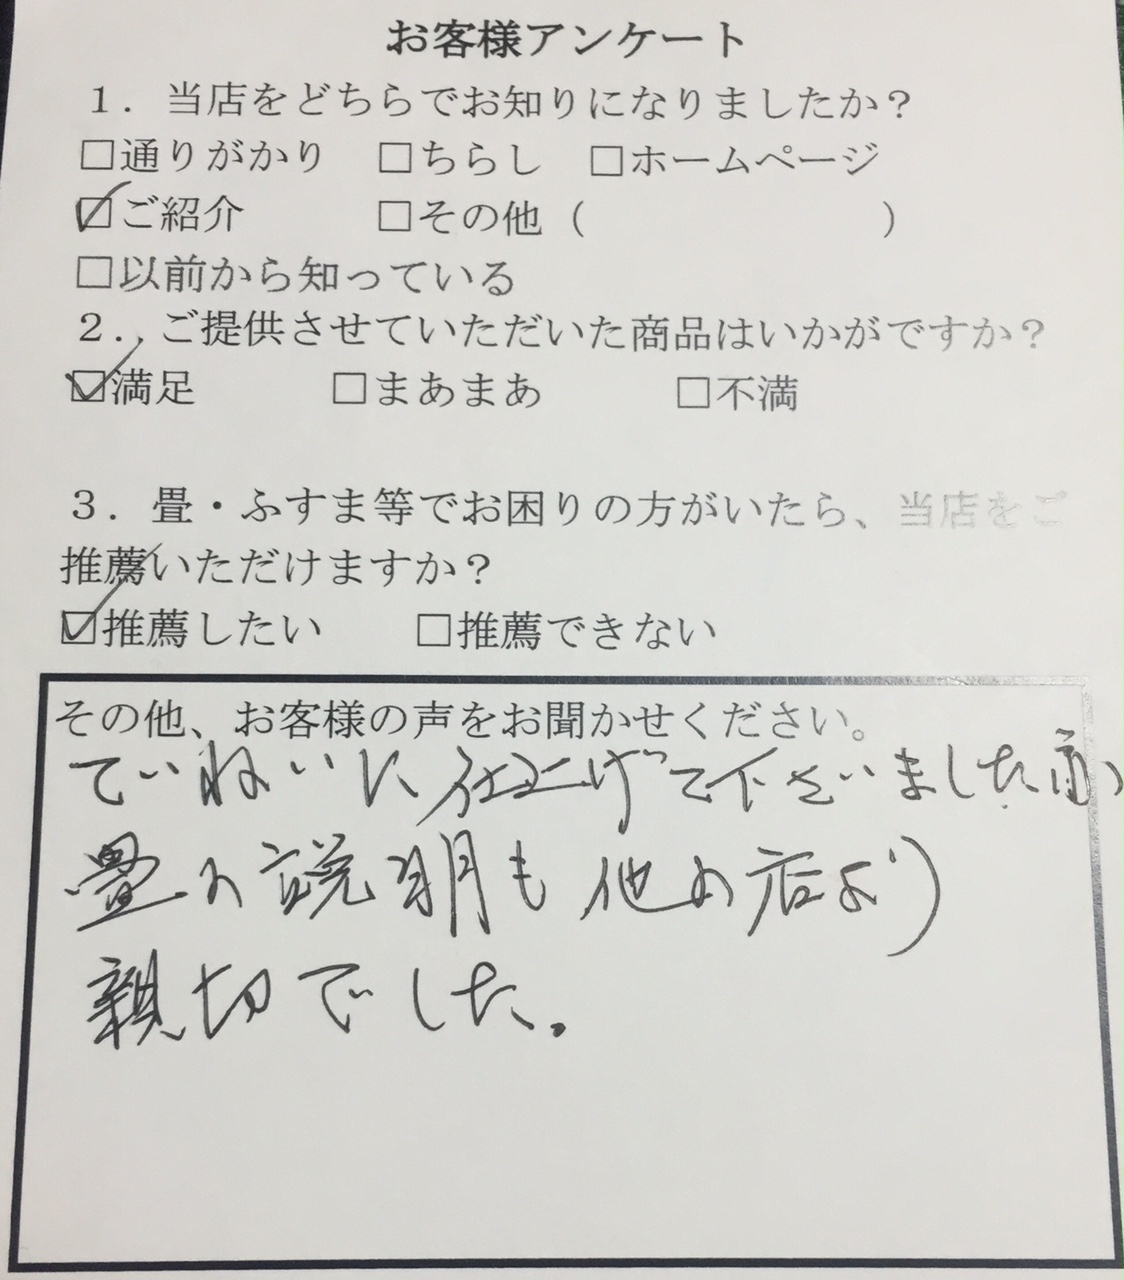 お客様アンケート
1. 当店をどちらでお知りになりましたか?
□通りがかり □ちらし □ホームページ
☑ご紹介 □その他 ( )
□以前から知っている
2. ご提供させていただいた商品はいかがですか?
☑満足 □まあまあ □不満
3. 畳・ふすま等でお困りの方がいたら、当店をご
推薦いただけますか?
☑推薦したい □推薦できない
その他、お客様の声をお聞かせください。
ていねいに仕上げて下さいました
畳の説明も他の店より
親切でした。